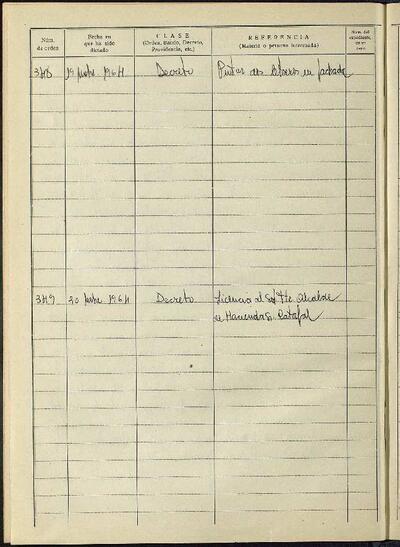 Núm. de orden
Fecha en que ha sido dictado
CLASE
(Orden, Bando, Decreto, Providencia, etc.)
REFERENCIA
(Materia o persona interesada)
Núm. del expediente,
19 1964 Decreto Pintar dos en fachada
349 20 1964 Decreto Licencia al Sr. Tte. Alcalde
de Hacienda Sr.